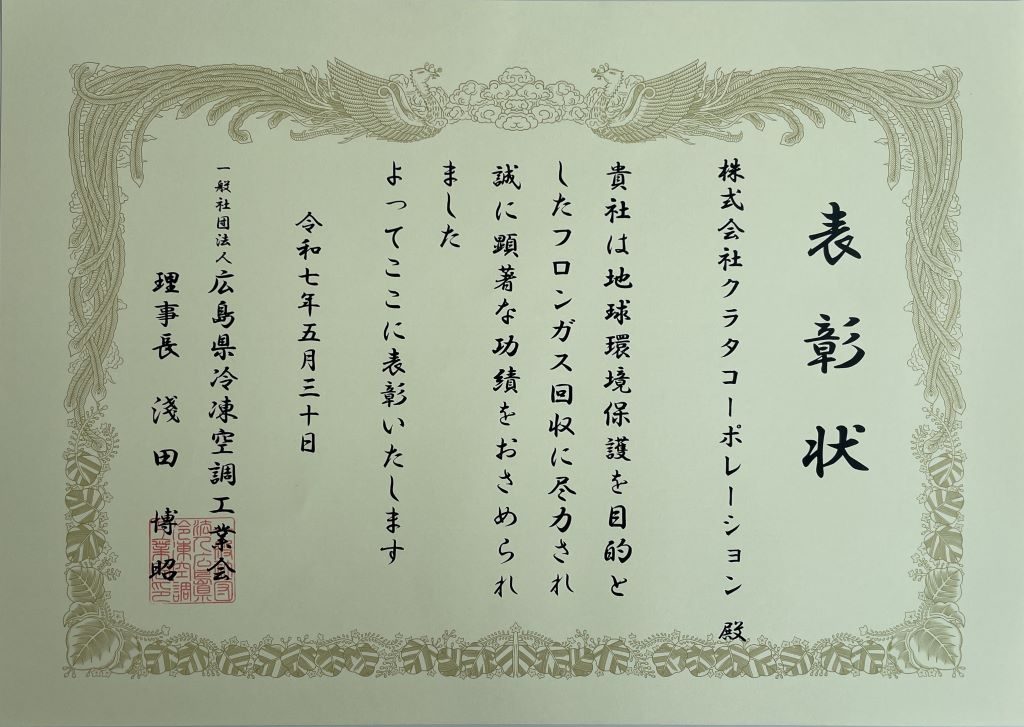 表彰状
株式会社クラタコーポレーション 殿
貴社は地球環境保護を目的と
したフロンガス回収に尽力され
誠に顕著な功績をおさめられ
ました
よってここに表彰いたします
令和七年五月三十日
一般社団法人広島県冷凍空調工業会
理事長 淺田 博昭